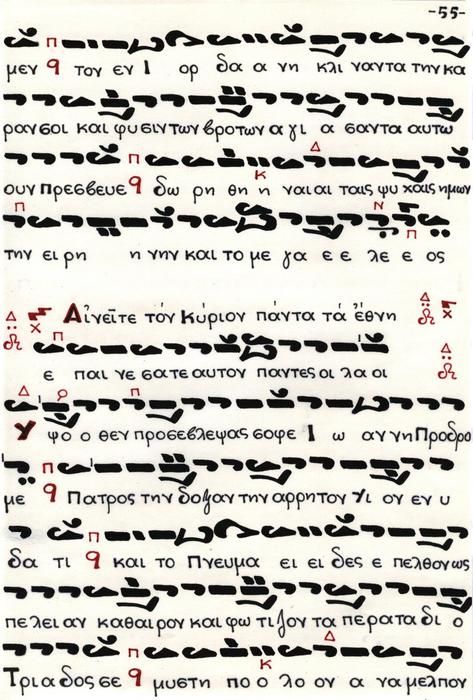 -55-
μεν τον εν Ι ορ δα α νη κλι ναντα την κα
ραν σοι και φυσιν των βροτων α γι α σαντα αυτω
ουν πρεσβευε δω ρη θη η ναι αι ταις ψυ χαις ημων
την ει ρη η νην και το με γα ε ε λε ε ος
Αἰνεῖτε τόν Κύριον πάντα τά ἔθνη
ε παι νε σατε αυτον παντες οι λα οι
Υ ψο ο θεν προσεβλεψας σοφε Ι ω αν νη Προδρο
με Πατρος την δοξαν την αρρητον Υι ον εν υ
δα τι και το Πνευμα ει ει δες ε πελθον ως
πελει αν καθαιρον και φω τιζον τα περατα δι ο
Τρι α δος σε μυστη πο ο λο ον α να μελπον